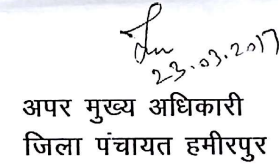 23.03.2017
अपर मुख्य अधिकारी
जिला पंचायत हमीरपुर